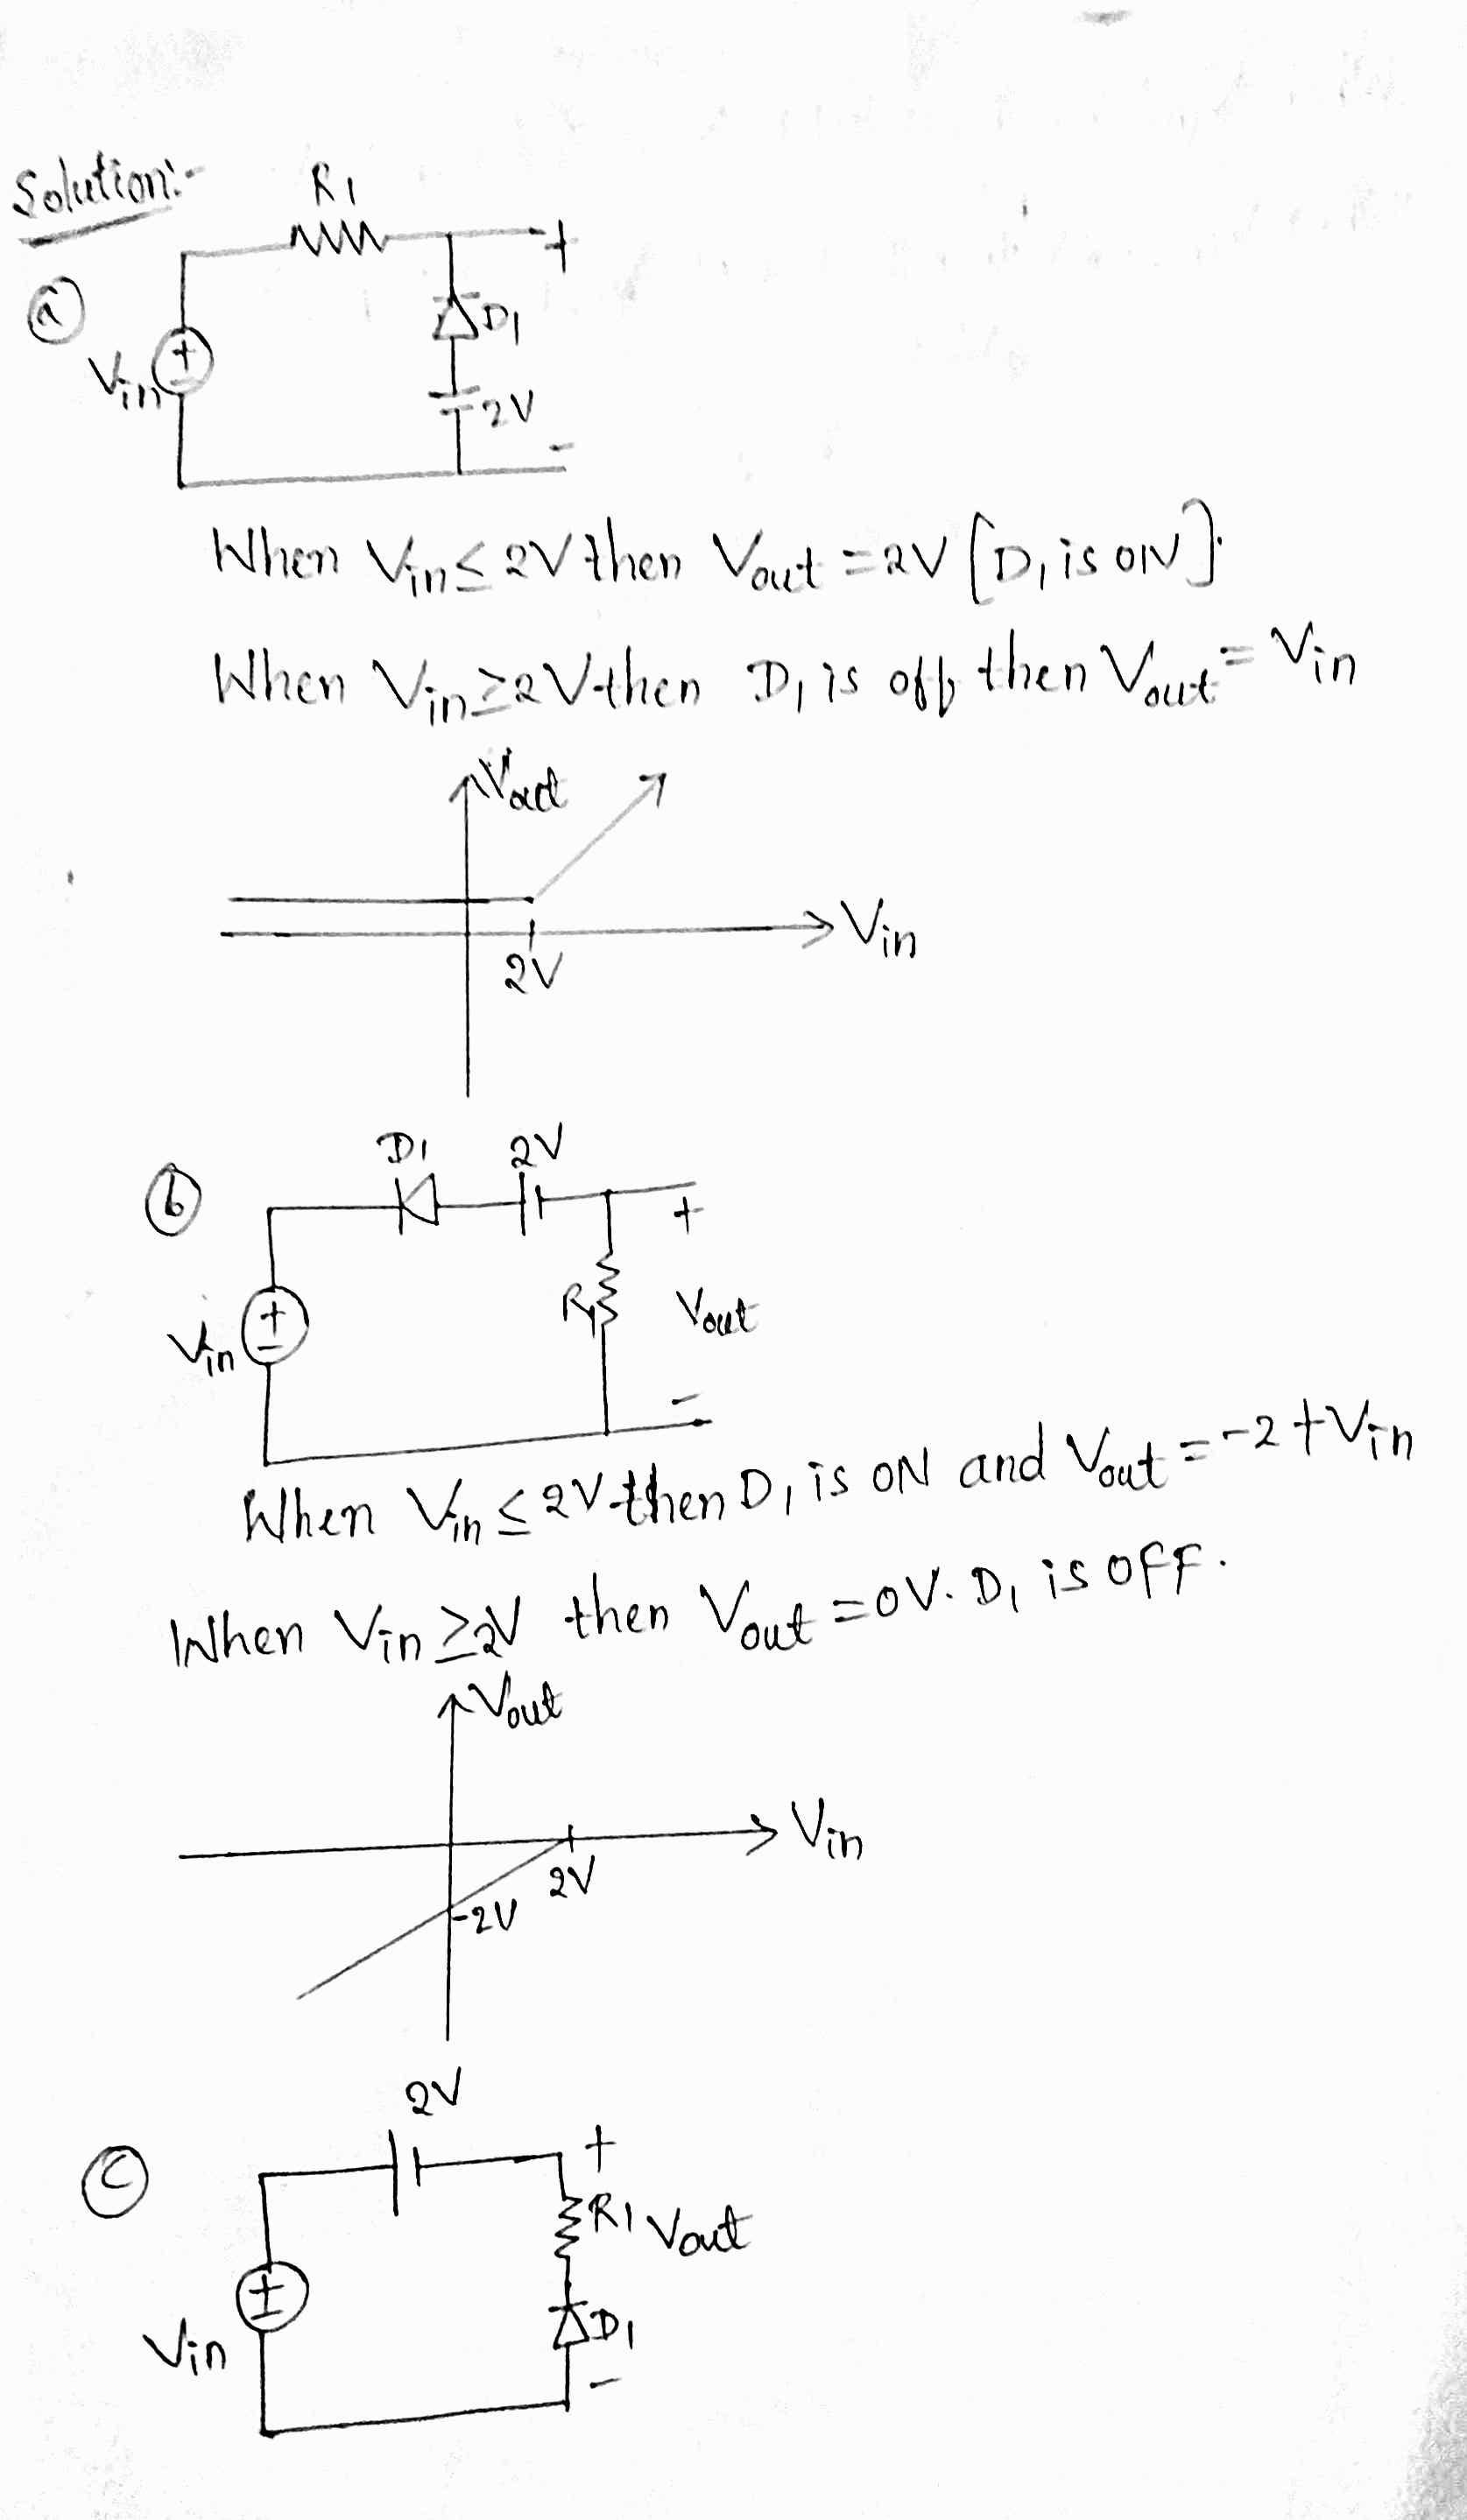 Solution:-
R1
+
(a)
D1
Vin
+
-
2V
-
When Vin ≤ 2V then Vout = 2V [D1 is ON].
When Vin ≥ 2V then D1 is off then Vout = Vin
Vout
Vin
2V
D1 2V
(b)
+
+
-
R1 Vout
Vin
-
When Vin ≤ 2V then D1 is ON and Vout = -2 + Vin
When Vin ≥ 2V then Vout = 0V. D1 is OFF.
Vout
Vin
2V
-2V
2V
(c)
+
R1 Vout
+
-
Vin
D1
-